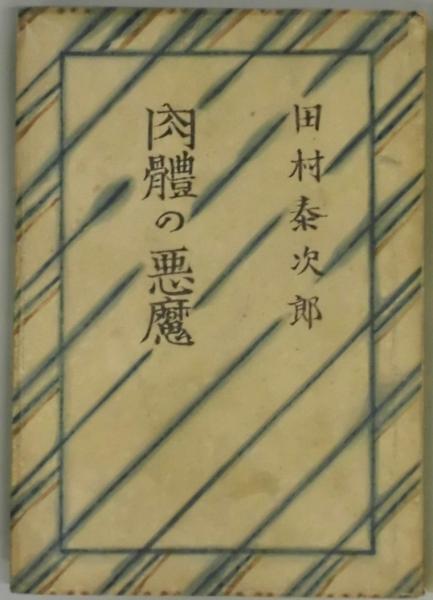 田村泰次郎
肉體の悪魔